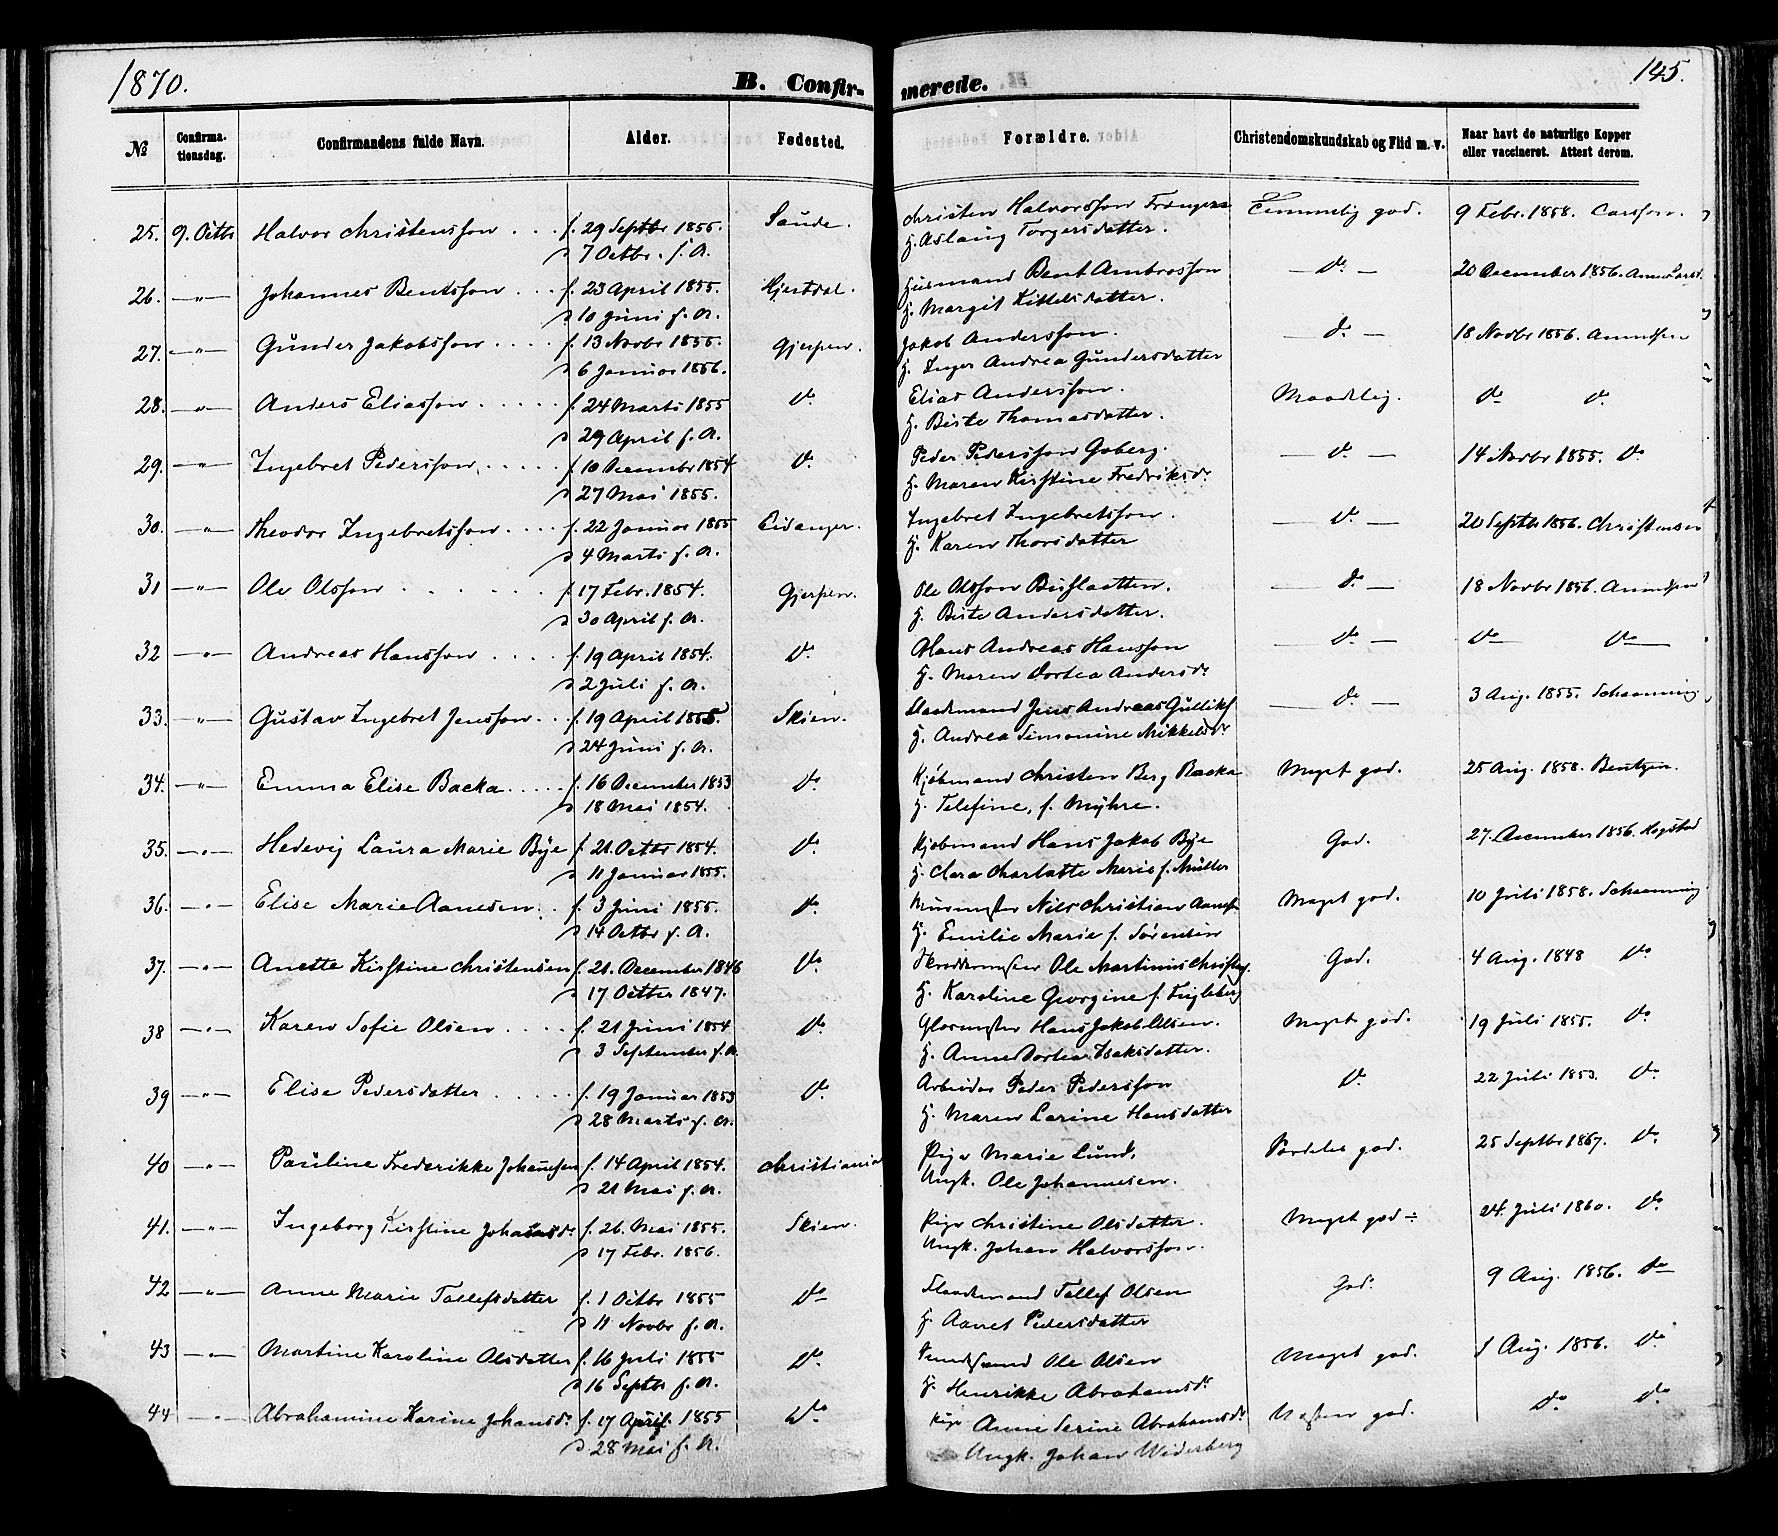 1870.
B. Confirmerede.
145.
№ Confirmationsdag. Confirmandens fulde Navn. Alder. Fødested. Forældre. Christendomskundskab og Flid m. v. Naar havt de naturlige Kopper eller vaccineret. Attest derom.
25. 9. Octbr Halvor Christenssøn f. 29 Septbr 1855. Saude. Christen Halvorssøn Temmelig god. 9 Febr. 1858.
d 7 Octbr. s. A. H. Aslaug Torgersdatter.
26. —"— Johannes Bentssøn f. 23 April 1855. Hjertdal. Husmand Bent Ambrossøn —do— 20 December 1856.
d 10 Juni s. A. H. Margit Kittelsdatter.
27. —"— Gunder Jakobssøn f. 13 Novbr 1855. Gjerpen. Jakob Anderssøn. do — 18 Novbr 1856. Amundsen
d 6 Januar 1856. H. Inger Andrea Gundersdatter
28. —"— Anders Eliassøn f. 24 Marts 1855 do Elias Anderssøn. Maadelig. do do
d 29 April s. A. H. Birte Thomasdatter.
29. —"— Ingebret Pederssøn f. 10 December 1854 do Peder Pederssøn Goberg. —do— 14 Novbr 1855. do
d 27 Mai 1855. H. Maren Kirstine Fredriksdr
30. —"— Theodor Ingebretssøn f. 22 Januar 1855 Eidanger. Ingebret Ingebretssøn. —do— 20 Septbr 1856. Christensen
d 4 Marts s. A. H. Karen Thorsdatter
31 —"— Ole Olssøn f. 17 Febr. 1854. Gjerpen. Ole Olssøn —do— 18 Novbr 1856. Amundsen
d 30 April s. A. H. Birte Andersdatter.
32 —"— Andreas Hanssøn f. 19 April 1854. do Hans Andreas Hanssøn —do— do do
d 2 Juli s. A. H. Maren Dortea Andersdr
33. —"— Gustav Ingebret Jenssøn f. 19 April 1855. Skien. Jens Andreas Gulliks. —do— 3 Aug. 1855. Schaanning
d 24 Juni s. A. H. Andrea Simonine Mikkelsdr
34. —"— Emma Elise Backa f. 16 December 1853 do Kjøbmand Christen Berg Backa Meget god. 25 Aug. 1858. Bentzen.
d 18 Mai 1854. H. Telefine, f. Myhre.
35. —"— Hedevig Laura Marie Bye f. 21. Octbr 1854. do Kjøbmand Hans Jakob Bye God. 27. December 1856.
d 11 Januar 1855. H. Clara Charlotte Marie f. Müller
36. —"— Elise Marie Aanesen f. 3 Juni 1855. do Nils Christian Meget god. 10 Juli 1858. Schaanning
d 14 Octbr s. A. H. Emilie Marie f. Sørensen
37. —"— Anette Kirstine Christensen f. 21. December 1846 do Ole Martinius God. 4 Aug. 1848 do
d 17 Octbr 1847. H. Karoline Georgine f.
38 —"— Karen Sofie Olsen f. 21 Juni 1854 do Glarmester Hans Jakob Olsen. Meget god. 19 Juli 1855. do
d 3 September s. A. H. Anne Dortea Isaksdatter.
39 —"— Elise Pedersdatter f. 19 Januar 1853 do Arbeider Peder Pederssøn do 22 Juli 1853. do
d 28 Marts s. A. H. Maren Larine Hansdatter
40 —"— Pauline Frederikke Johannesen f. 14 April 1854. Christiania Pige Marie Lund, Særdeles god. 25 Septbr 1867. do
d 21 Mai s. A. Ungk. Ole Johannesen.
41. —"— Ingeborg Kirstine Johansdr f. 26. Mai 1855. Skien. Pige Christine Olsdatter. Meget god ÷ 24. Juli 1860. do
d 17 Febr. 1856. Ungk. Johan Halvorssøn.
42 —"— Anne Marie Tollefsdatter f. 1 Octbr 1855 do Tollef Olsen God. 9 Aug. 1856. do
d 11 Novbr s. A. H. Aanet Pedersdatter
43 —"— Martine Karoline Olsdatter f. 16 Juli 1855 do Ole Olsen Meget god. 1 Aug. 1856. do
d 16 Septbr s. A. H. Henrikke Abrahamsdr
44 —"— Abrahamine Karine Johansdr f. 17 April 1855 do Pige Anne Serine Abrahamsdr Næsten god. do do
d 28 Mai s. A. Ungk. Johan Widerberg